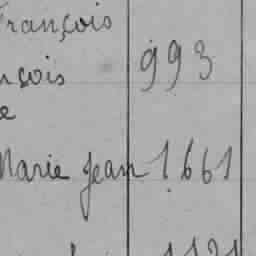 François
993
nçois
e
Marie Jean 1.661
1121